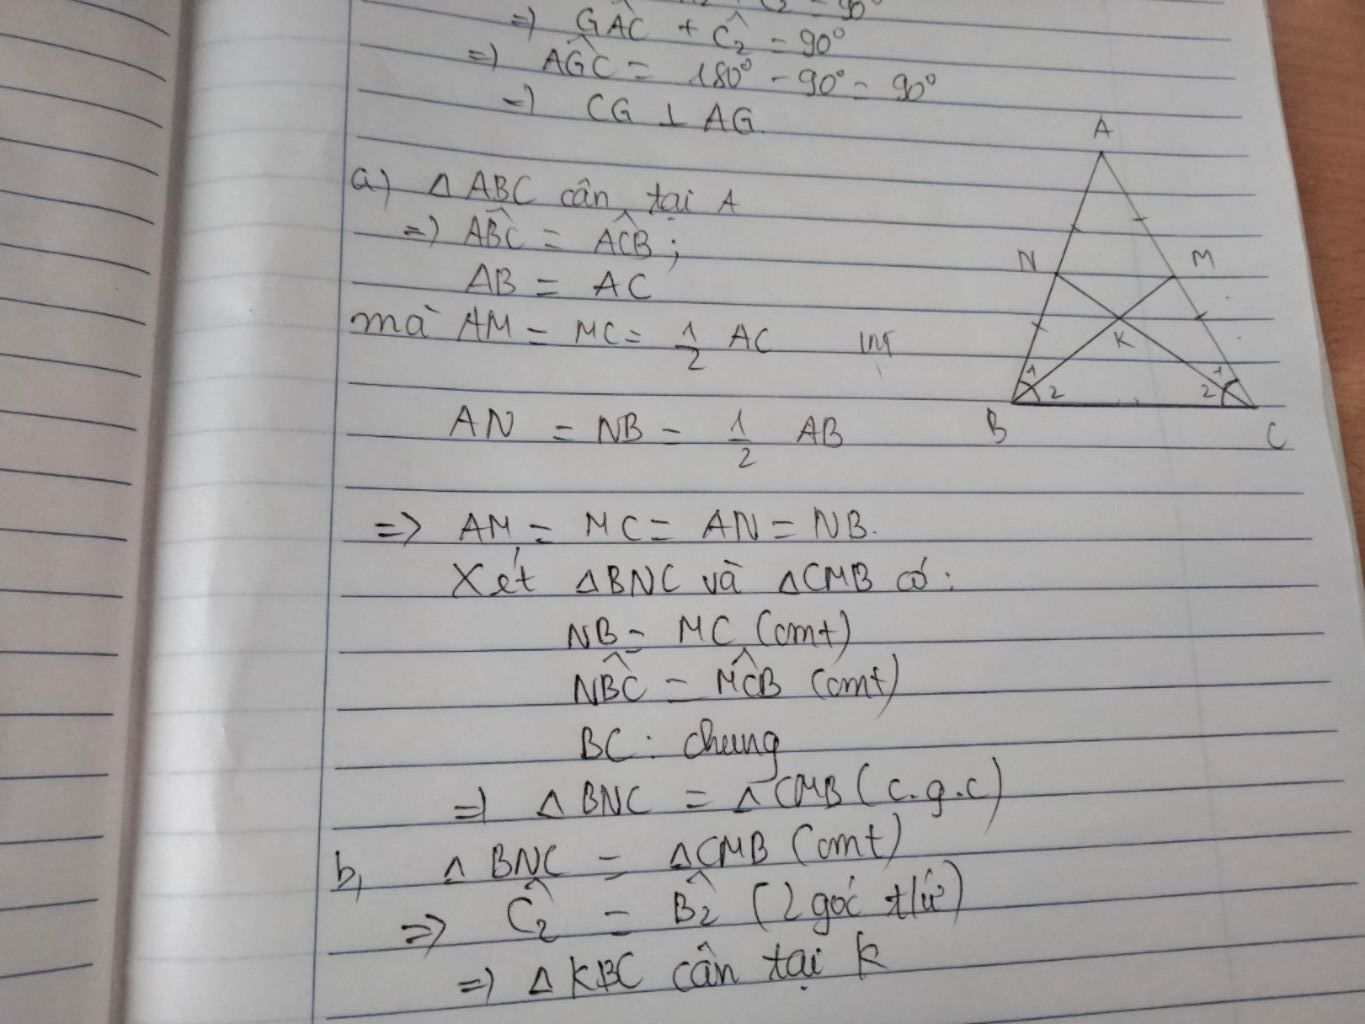 =) GÂC + Ĉ₂ = 90°
=) AĜC = 180° - 90° = 90°
=) CG ⊥ AG.
a) Δ ABC cân tại A
=) AB̂C = AĈB ;
AB = AC
mà AM = MC = 1/2 AC
AN = NB = 1/2 AB
=> AM = MC = AN = NB.
Xét ΔBNC và ΔCMB có :
NB = MC (cmt)
NB̂C = MĈB (cmt)
BC : chung
=) Δ BNC = Δ CMB (c.g.c)
b, Δ BNC = ΔCMB (cmt)
=> Ĉ₂ = B̂₂ (2 góc t/ứ)
=) Δ KBC cân tại K
A
N M
K
1 2 2 1
B C